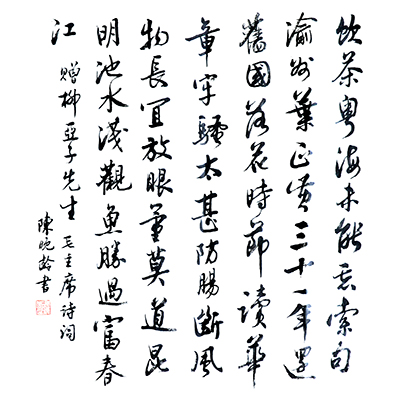 飲茶粵海未能忘索句
渝州葉正黃三十一年還
舊國落花時節讀華
章牢騷太甚防腸斷風
物長宜放眼量莫道昆
明池水淺觀魚勝過富春
江 贈柳亞子先生 毛主席詩詞
陳晚齡書